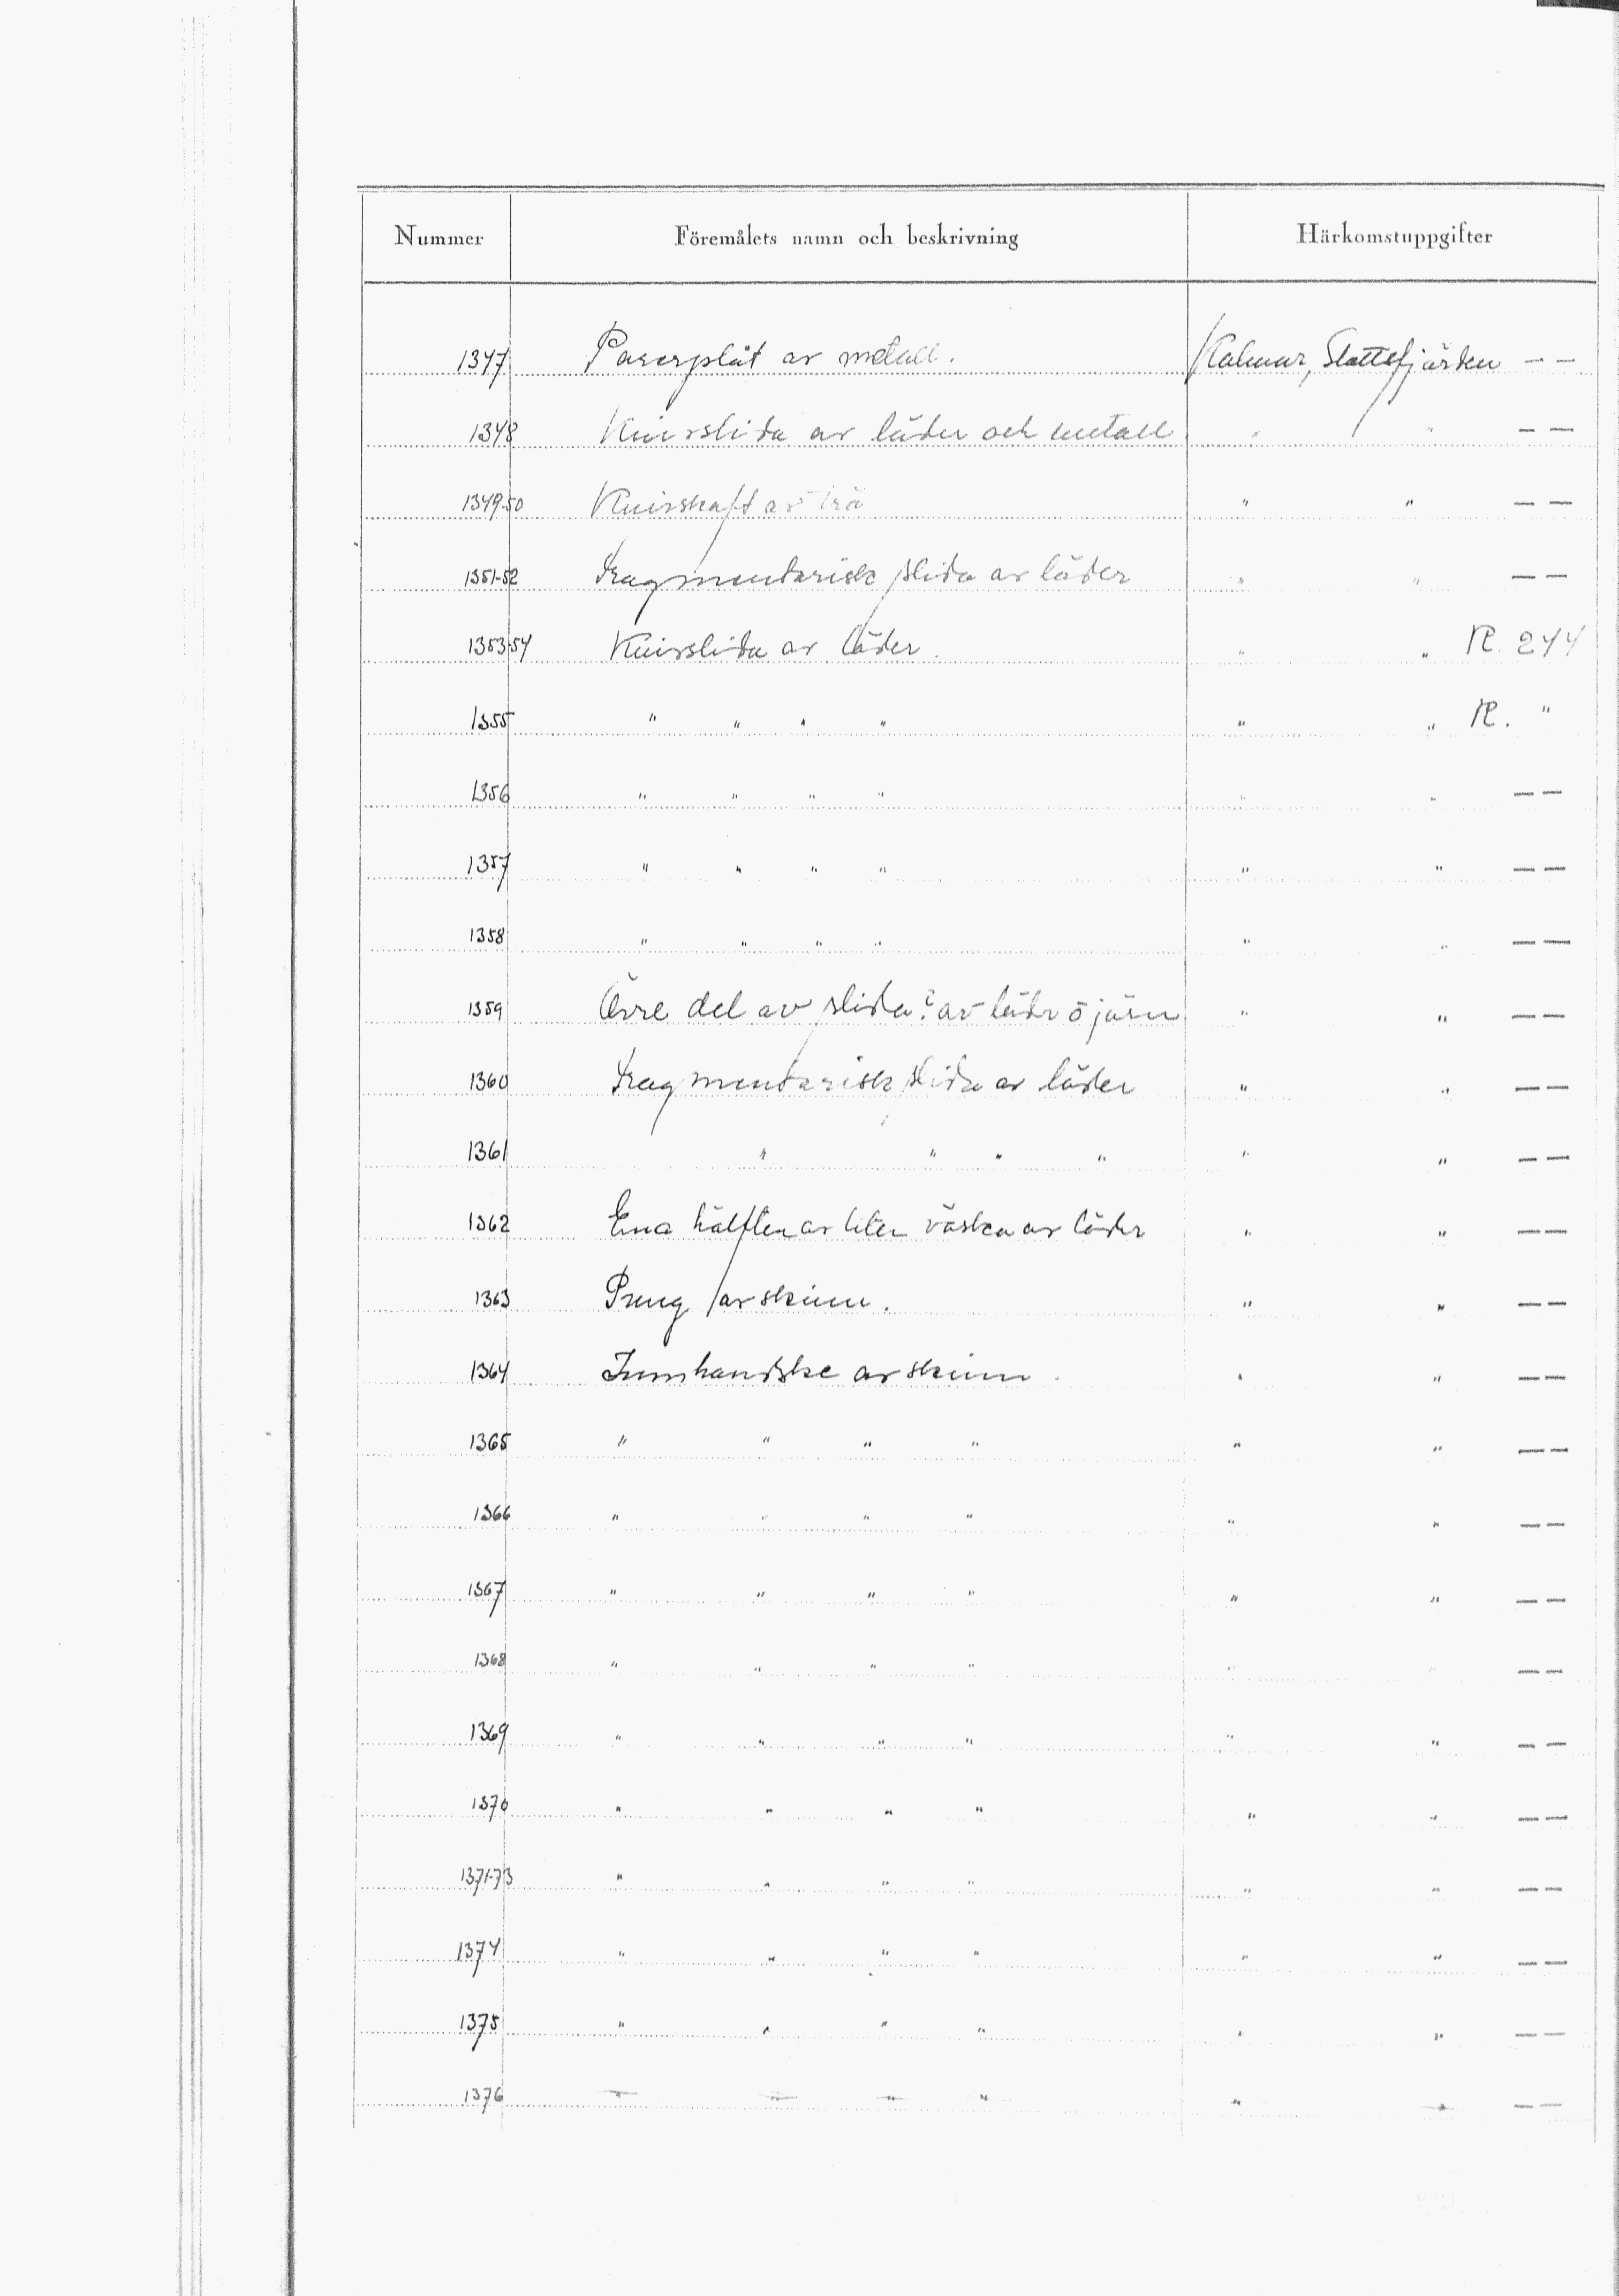 Nummer Föremålets namn och beskrivning Härkomstuppgifter
1347 av metall. Kalmar, Slottsfjärden — —
1348 Knivslida av läder och metall " " — —
1349-50 Knivskaft av trä " " — —
1351-52 Fragmentarisk slida av läder " " — —
1353-54 Knivslida av läder. " " K. 244
1355 " " " " " " K. "
1356 " " " " " " — —
1357 " " " " " " — —
1358 " " " " " " — —
1359 Övre del av slida? av läder o järn " " — —
1360 Fragmentarisk slida av läder " " — —
1361 " " " " " " — —
1362 Ena hälften av liten väska av läder " " — —
1363 Pung av skinn. " " — —
1364 Tumhandske av skinn. " " — —
1365 " " " " " " — —
1366 " " " " " " — —
1367 " " " " " " — —
1368 " " " " " " — —
1369 " " " " " " — —
1370 " " " " " " — —
1371-73 " " " " " " — —
1374 " " " " " " — —
1375 " " " " " " — —
1376 " " " " " " — —